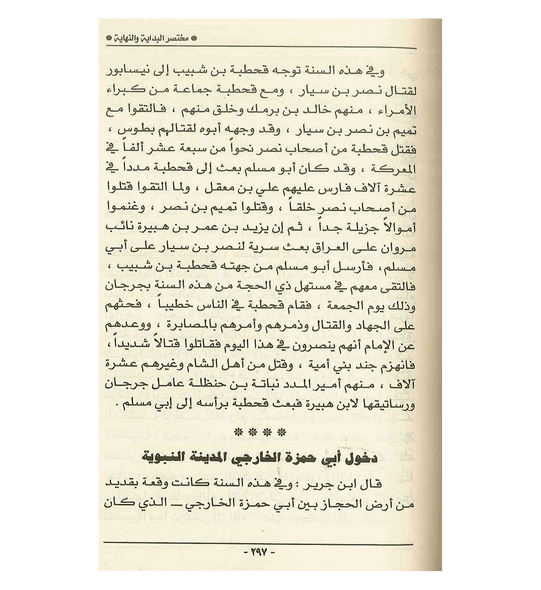 ● مختصر البداية والنهاية ●
وفي هذه السنة توجه قحطبة بن شبيب إلى نيسابور
لقتال نصر بن سيار ، ومع قحطبة جماعة من كبراء
الأمراء ، منهم خالد بن برمك وخلق منهم ، فالتقوا مع
تميم بن نصر بن سيار ، وقد وجهه أبوه لقتالهم بطوس ،
فقتل قحطبة من أصحاب نصر نحواً من سبعة عشر ألفاً في
المعركة ، وقد كان أبو مسلم بعث إلى قحطبة مدداً في
عشرة آلاف فارس عليهم علي بن معقل ، ولما التقوا قتلوا
من أصحاب نصر خلقاً ، وقتلوا تميم بن نصر ، وغنموا
أموالاً جزيلة جداً ، ثم إن يزيد بن عمر بن هبيرة نائب
مروان على العراق بعث سرية لنصر بن سيار على أبي
مسلم ، فأرسل أبو مسلم من جهته قحطبة بن شبيب ،
فالتقى معهم في مستهل ذي الحجة من هذه السنة بجرجان
وذلك يوم الجمعة ، فقام قحطبة في الناس خطيباً ، فحثهم
على الجهاد والقتال وذمرهم وأمرهم بالمصابرة ، ووعدهم
عن الإمام أنهم ينصرون في هذا اليوم فقاتلوا قتالاً شديداً ،
فانهزم جند بني أمية ، وقتل من أهل الشام وغيرهم عشرة
آلاف ، منهم أمير المدد نباتة بن حنظلة عامل جرجان
ورساتيقها لابن هبيرة فبعث قحطبة برأسه إلى إبي مسلم .
* * * *
دخول أبي حمزة الخارجي المدينة النبوية
قال ابن جرير : وفي هذه السنة كانت وقعة بقديد
من أرض الحجاز بين أبي حمزة الخارجي ــ الذي كان
- ٢٩٧ -